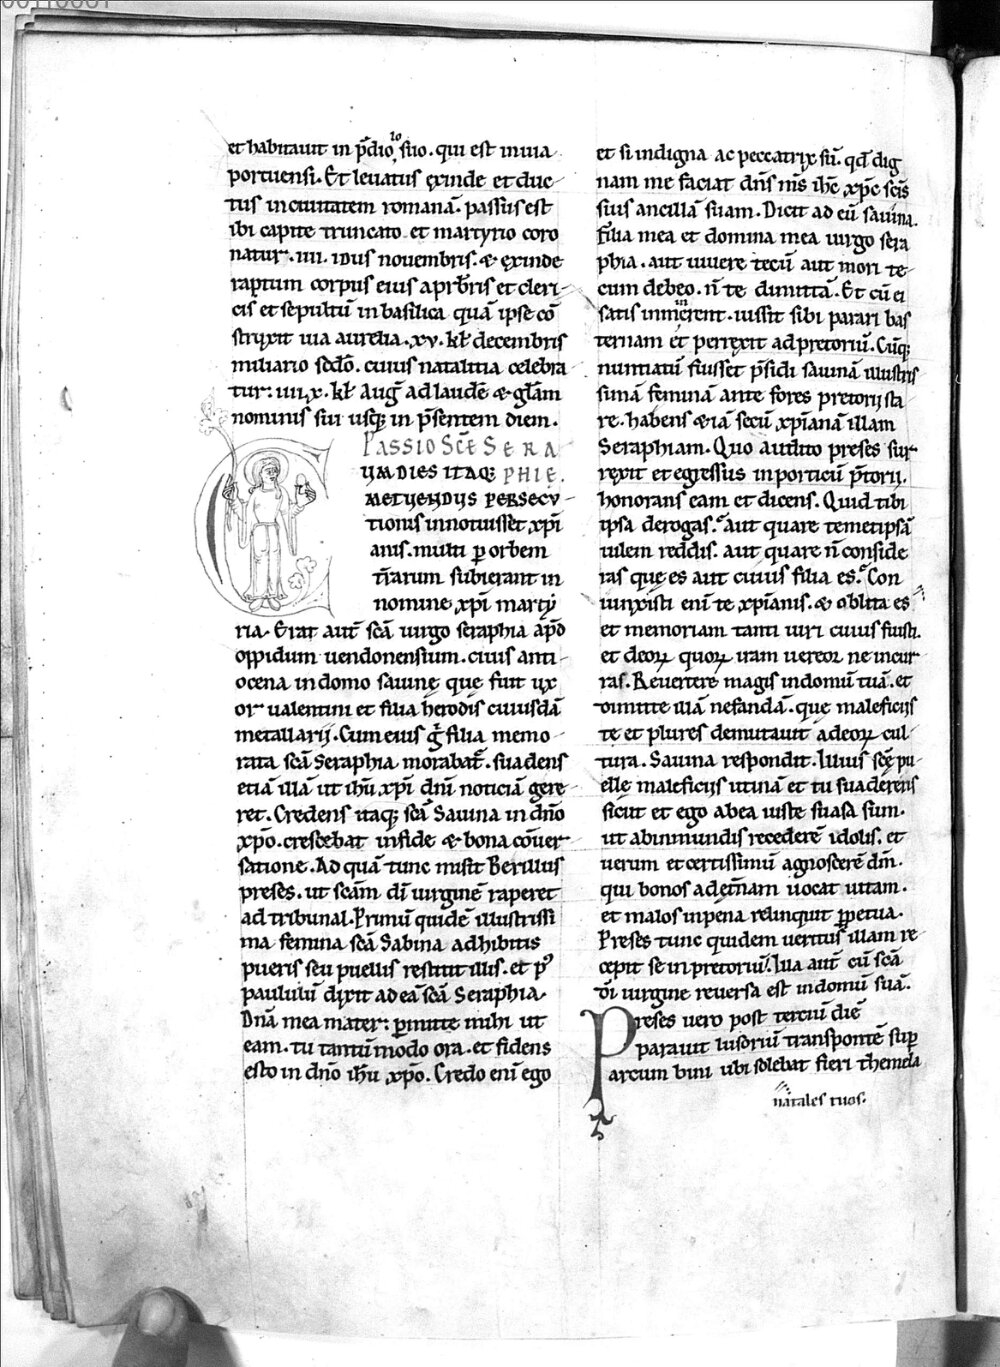 et habitauit in p̄dio, suo. qui est in uia
portuensi. Et leuatus exinde et duc-
tus in ciuitatem romanā. passus est
ibi capite truncato et martyrio coro
natur. iiii. idus nouembris. & exinde
raptum corpus eius a prb̄ris et cleri-
cis et sepultū in basilica quā ipse cō
struxit uia aurelia. xv. kl̄ decembris
miliario scdō. cuius natalitia celebra
tur. kl̄ Auḡ ad laudē & glām
nominis sui usq; in p̄sentem diem.
PASSIO SCE SERA
PHIE.
CUM DIES ITAQ;
METUENDUS PERSECU-
tionis innotuisset xp̄i
anis. multi p orbem
t̄rarum subierant in
nomine xp̄i marty
ria. Erat aut̄ scā uirgo seraphia apd̄
oppidum uendonensium. ciuis anti-
ocena in domo sauinę que fuit ux
or ualentini et filia herodis cuiusdā
metallarij. Cum eius g̊ filia memo-
rata scā Seraphia morabat̄. suadens
etiā illā ut ih̄u xp̄i dn̄i noticiā gere-
ret. Credens itaq; scā Sauina in dn̄o
xp̄o. crescebat in fide & bona cōuer-
satione. Ad quā tunc misit Berillus
preses. ut scām dī uirginē raperet
ad tribunal. Primū quidē illustrissi
ma femina scā Sabina adhibitis
pueris seu puellis restitit illis. et p̄
paululū dixit ad eā scā Seraphia.
Dn̄a mea mater: pmitte mihi ut
eam. tu tantū modo ora. et fidens
esto in dn̄o ih̄u xp̄o. Credo eni ego
et si indigna ac peccatrix sū. qd̄ dig
nam me faciat dn̄s n̄s ih̄c xp̄c scīs
suis ancillā suam. Dicit ad eū sauina.
Filia mea et domina mea uirgo sera
phia. aut uiuere tecū aut mori te-
cum debeo. n̄ te dimittā. Et cū ei
satis inniterent. iussit sibi parari bas
ternam et perrexit ad pretoriū. Cūq;
nuntiatū fuisset p̄sidi sauinā illustris
simā feminā ante fores pretorij sta
re. habens & iā secū xp̄ianā illam
Seraphiam. Quo audito preses sur-
rexit et egressus in porticū p̄torii.
honorans eam et dicens. Quid tibi
ipsa derogas. aut quare temetipsā
uilem reddis. aut quare n̄ conside
ras que es aut cuius filia es. Con
iunxisti eni te xp̄ianis. & oblita es
et memoriam tanti uiri cuius fuisti.
et deoꝝ quoꝝ iram uereor ne incur
ras. Reuertere magis in domū tuā. et
dimitte illā nefandā. que maleficijs
te et plures demutauit a deoꝝ cul-
tura. Sauina respondit. Illius scē pu-
elle maleficijs utinā et tu suaderens
sicut et ego ab ea iuste suasa sum.
ut ab inmundis recederē idolis. et
uerum et certissimū agnoscerē dm̄.
qui bonos ad et̄nam uocat uitam.
et malos in pena relinquit ꝑpetua.
Preses tunc quidem ueritus illam re-
cepit se in pretoriū. Illa aut̄ cū scā
dī uirgine reuersa est in domū suā.
Preses uero post terciū diē
parauit lusoriū transpontē sup
arcum bini ubi solebat fieri themela
natales tuos.